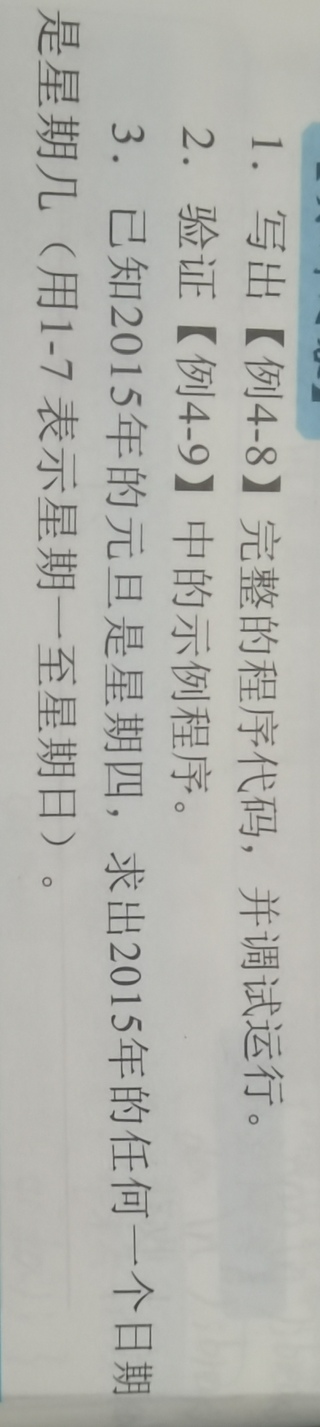 1. 写出【例4-8】完整的程序代码，并调试运行。
2. 验证【例4-9】中的示例程序。
3. 已知2015年的元旦是星期四，求出2015年的任何一个日期
是星期几（用1-7表示星期一至星期日）。